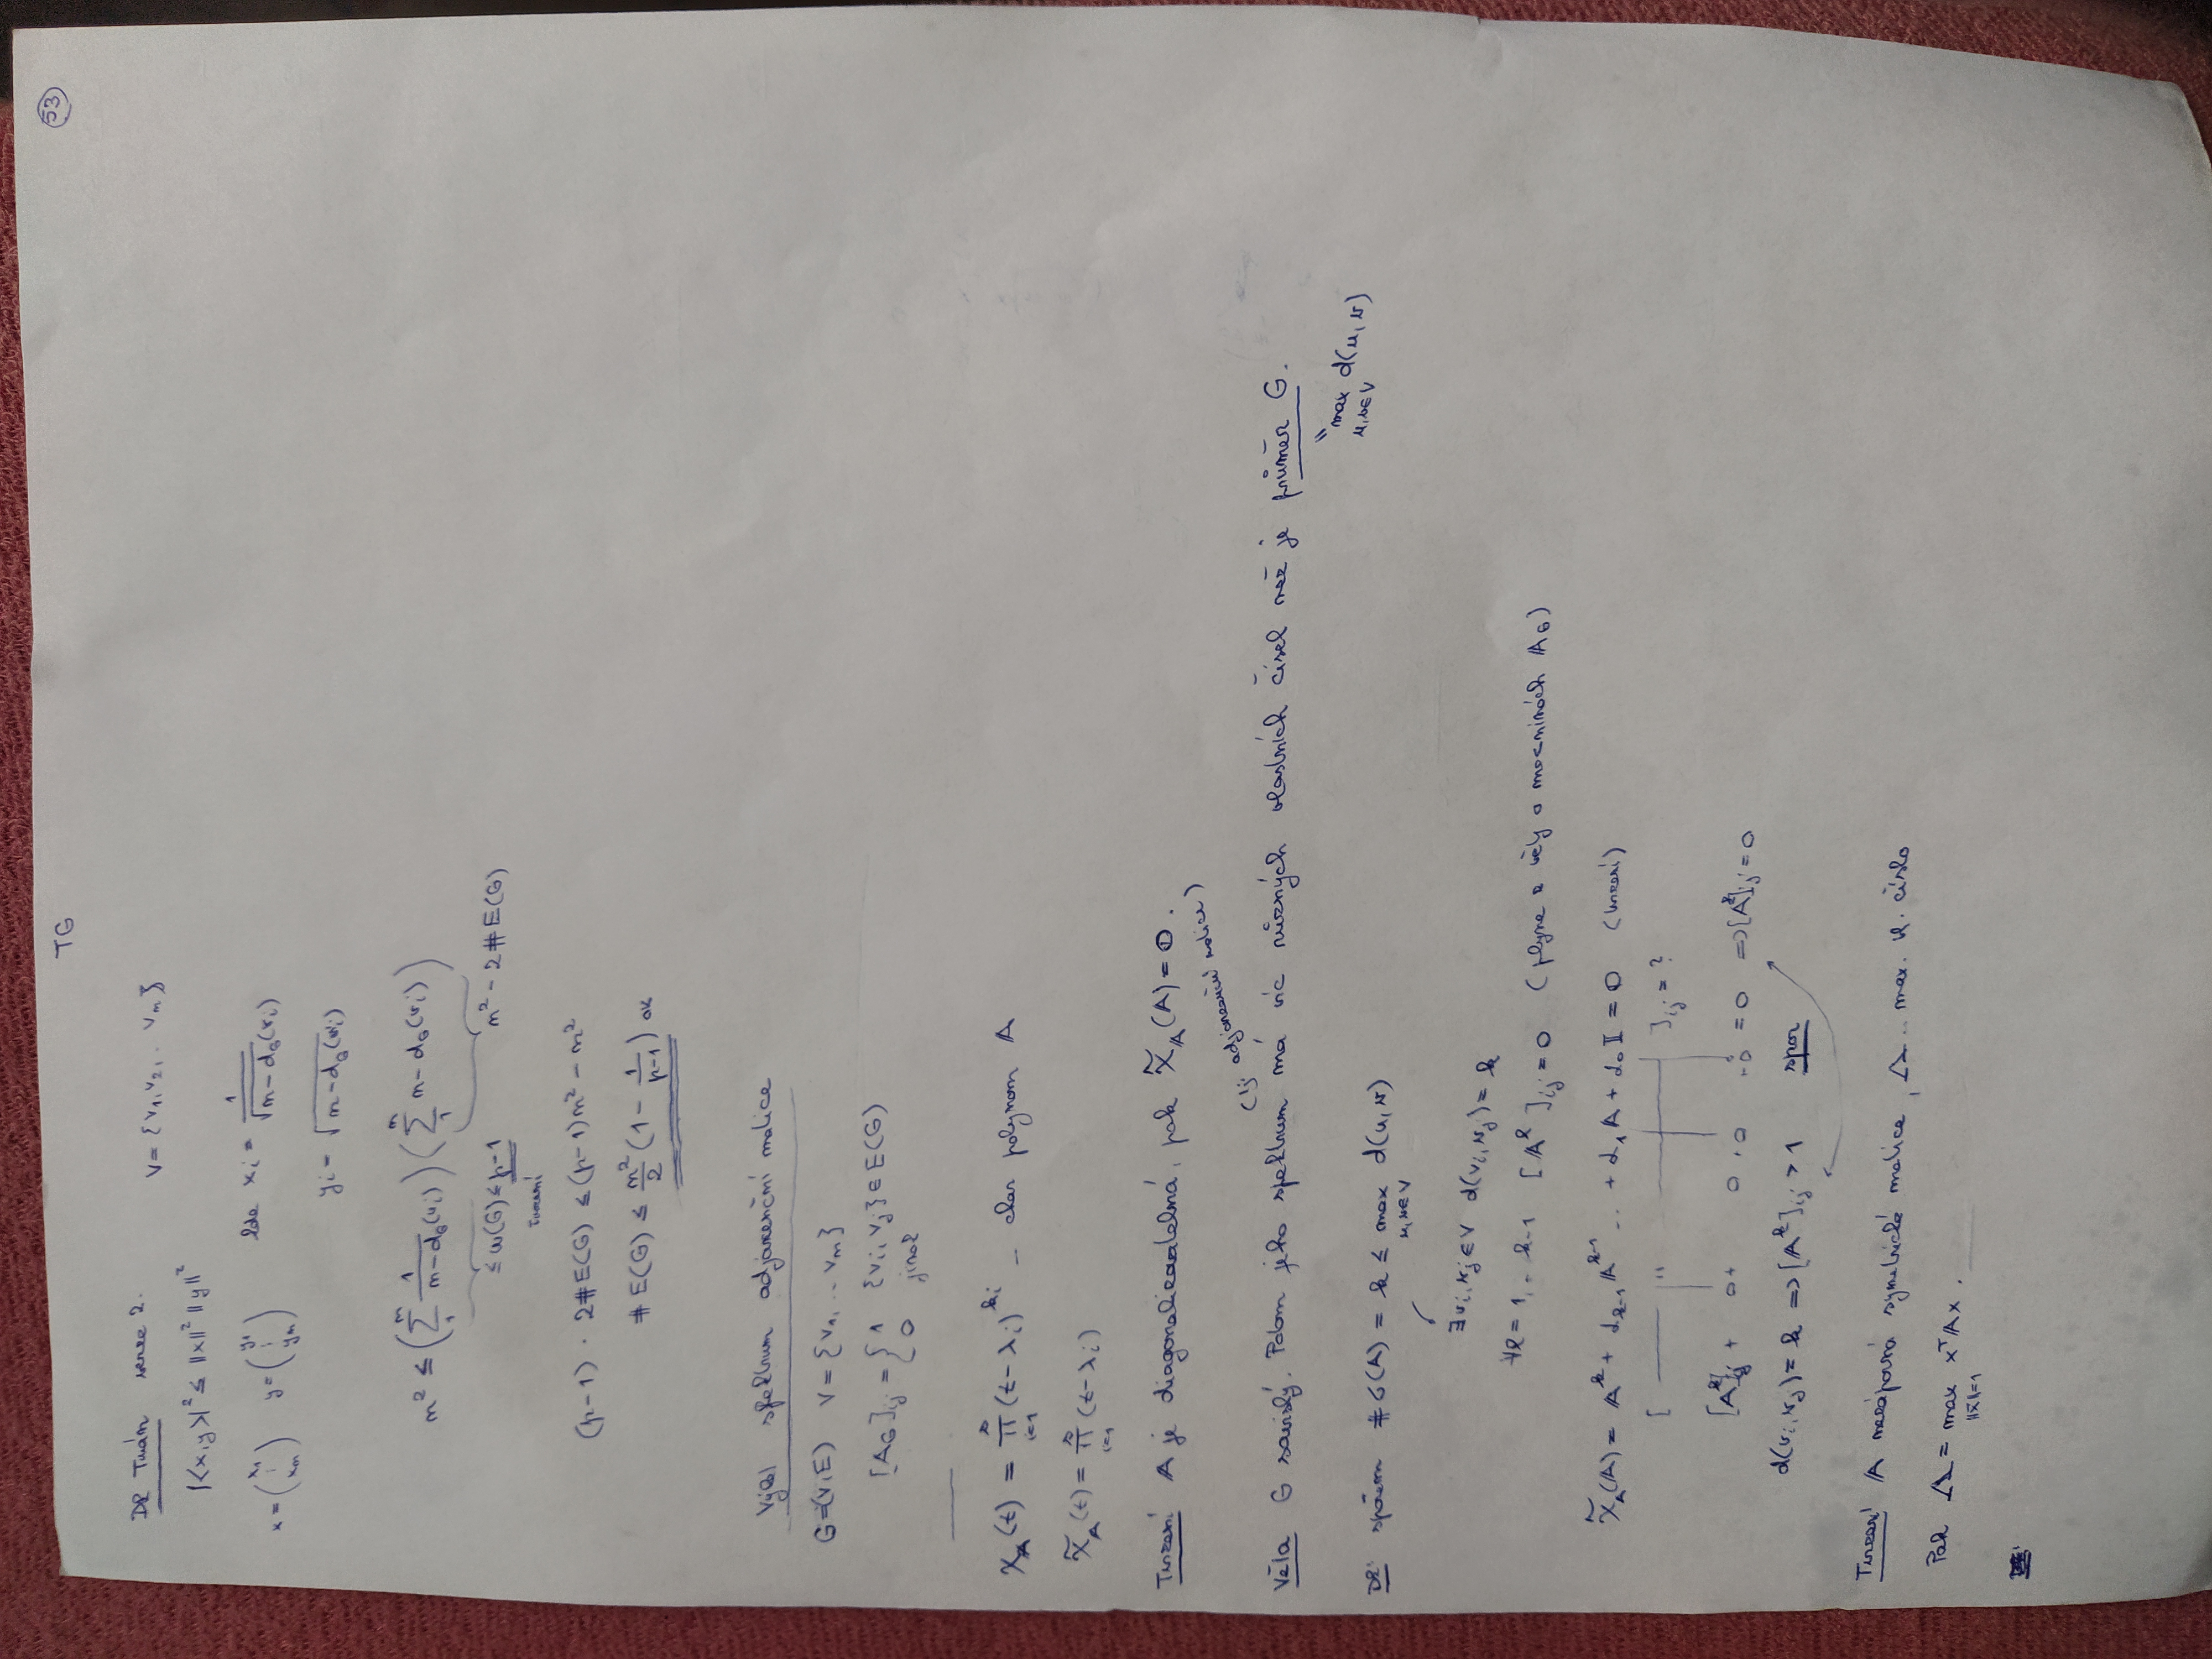 TG
53
Dk Turán verze 2. V = {v₁, v₂, .. vₙ}
|<x,y>|² ≤ ||x||² ||y||²
x = (x₁ ⋮ xₙ) y = (y₁ ⋮ yₙ) kde xᵢ = 1/√(n - d_G(vᵢ))
yᵢ = √(n - d_G(vᵢ))
n² ≤ (∑₁ⁿ 1/(n - d_G(vᵢ))) (∑₁ⁿ n - d_G(vᵢ))
≤ ω(G) ≤ p-1 n² - 2#E(G)
tvrzení
(p-1) · 2#E(G) ≤ (p-1)n² - n²
#E(G) ≤ n²/2 (1 - 1/(p-1)) ok
Výběr spektrum adjacenční matice
G=(V,E) V = {v₁, .. vₙ}
[A_G]ᵢⱼ = { 1 {vᵢ, vⱼ} ∈ E(G)
0 jinak
χ_A(t) = ∏ᵢ₌₁ˢ (t-λᵢ)^kᵢ - char polynom A
χ̃_A(t) = ∏ᵢ₌₁ˢ (t-λᵢ)
Tvrzení A je diagonalizovatelná, pak χ̃_A(A) = 0.
(tj adjacenční matice)
Věta G souvislý. Potom jeho spektrum má víc různých vlastních čísel než je průměr G.
" max d(u,v)
u,v∈V
Dk: sporem #σ(A) = k ≤ max d(u,v)
u,v∈V
∃vᵢ,vⱼ∈V d(vᵢ,vⱼ) = k
∀l = 1, .. k-1 [A^l]ᵢⱼ = 0 (plyne z věty o mocninách A_G)
χ̃_A(A) = A^k + α_{k-1} A^{k-1} .. + α₁A + α₀I = 0 (tvrzení)
[ —— " —— ]ᵢⱼ = ?
[A^k]ᵢⱼ + 0 + 0 . 0 .. 0 = 0 ⇒ [A^k]ᵢⱼ = 0
d(vᵢ,vⱼ) = k ⇒ [A^k]ᵢⱼ > 1 spor
Tvrzení A nezáporná symetrická matice, Λ .. max. vl. číslo
Pak Λ = max xᵀAx.
||x||=1
Dk: